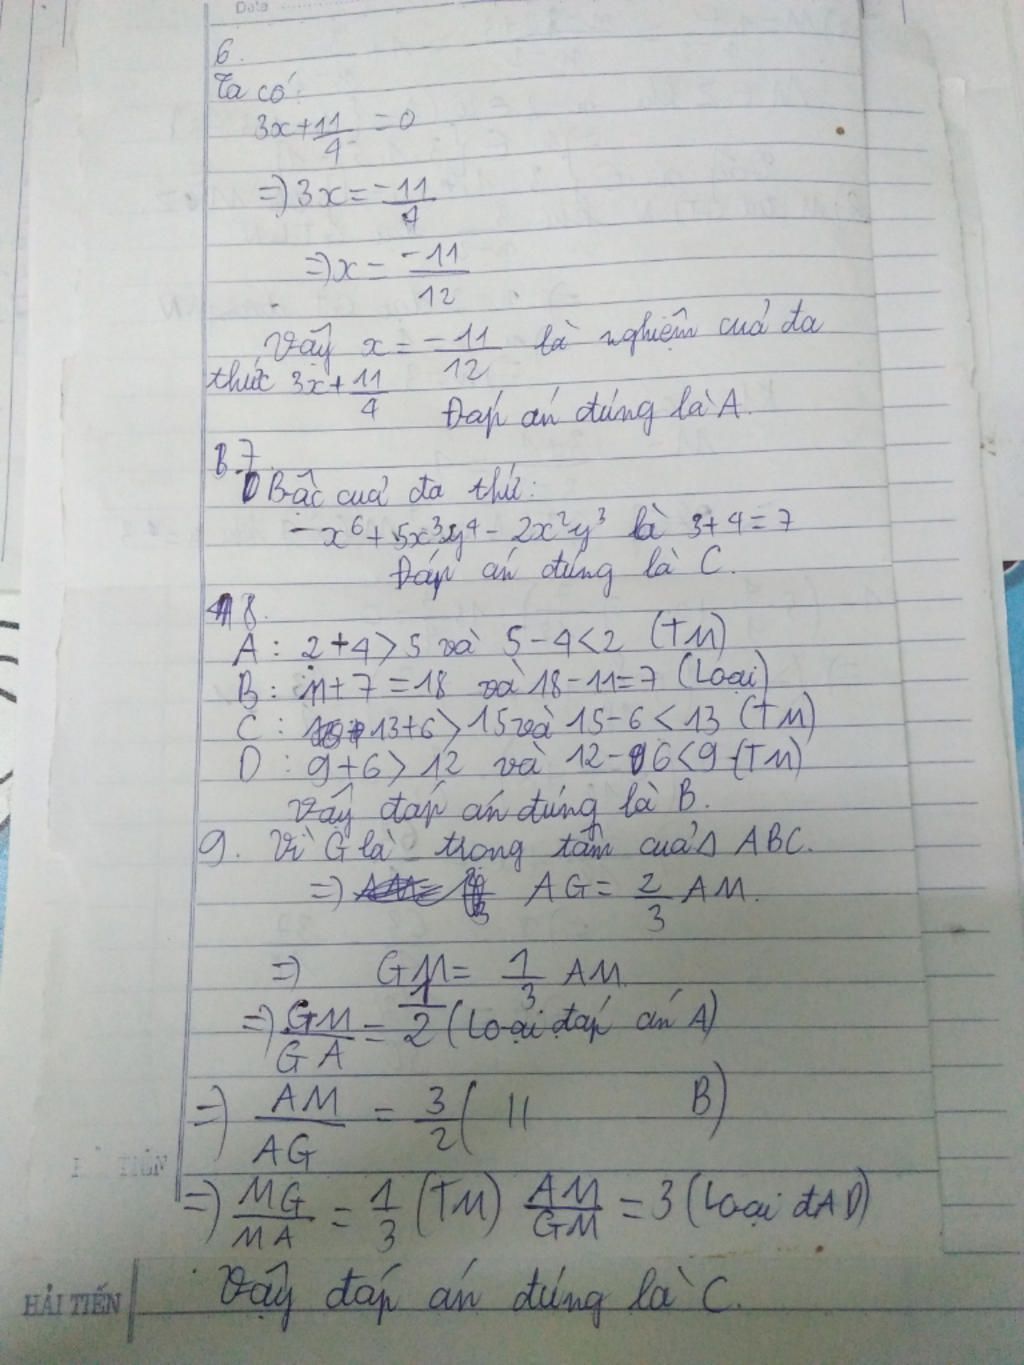 Date
6.
Ta có:
3x + 11/4 = 0
=> 3x = -11/4
=> x = -11/12
Vậy x = -11/12 là nghiệm cuả đa
thức 3x + 11/4
Đáp án đúng là A.
B7.
Bậc cuả đa thức:
-x⁶ + 5x³y⁴ - 2x²y³ là 3+4=7
Đáp án đúng là C.
8.
A: 2+4>5 và 5-4<2 (TM)
B: 11+7=18 và 18-11=7 (Loại)
C: 13+6>15 và 15-6<13 (TM)
D: 9+6>12 và 12-6<9 (TM)
Vậy đáp án đúng là B.
9. Vì G là trọng tâm cuả Δ ABC.
=> AG = 2/3 AM.
=> GM = 1/3 AM
=> GM/GA = 1/2 (Loại đáp án A)
=> AM/AG = 3/2 ( 11 B)
=> MG/MA = 1/3 (TM) AM/GM = 3 (Loại đA D)
HẢI TIẾN
Vậy đáp án đúng là C.
HẢI TIẾN